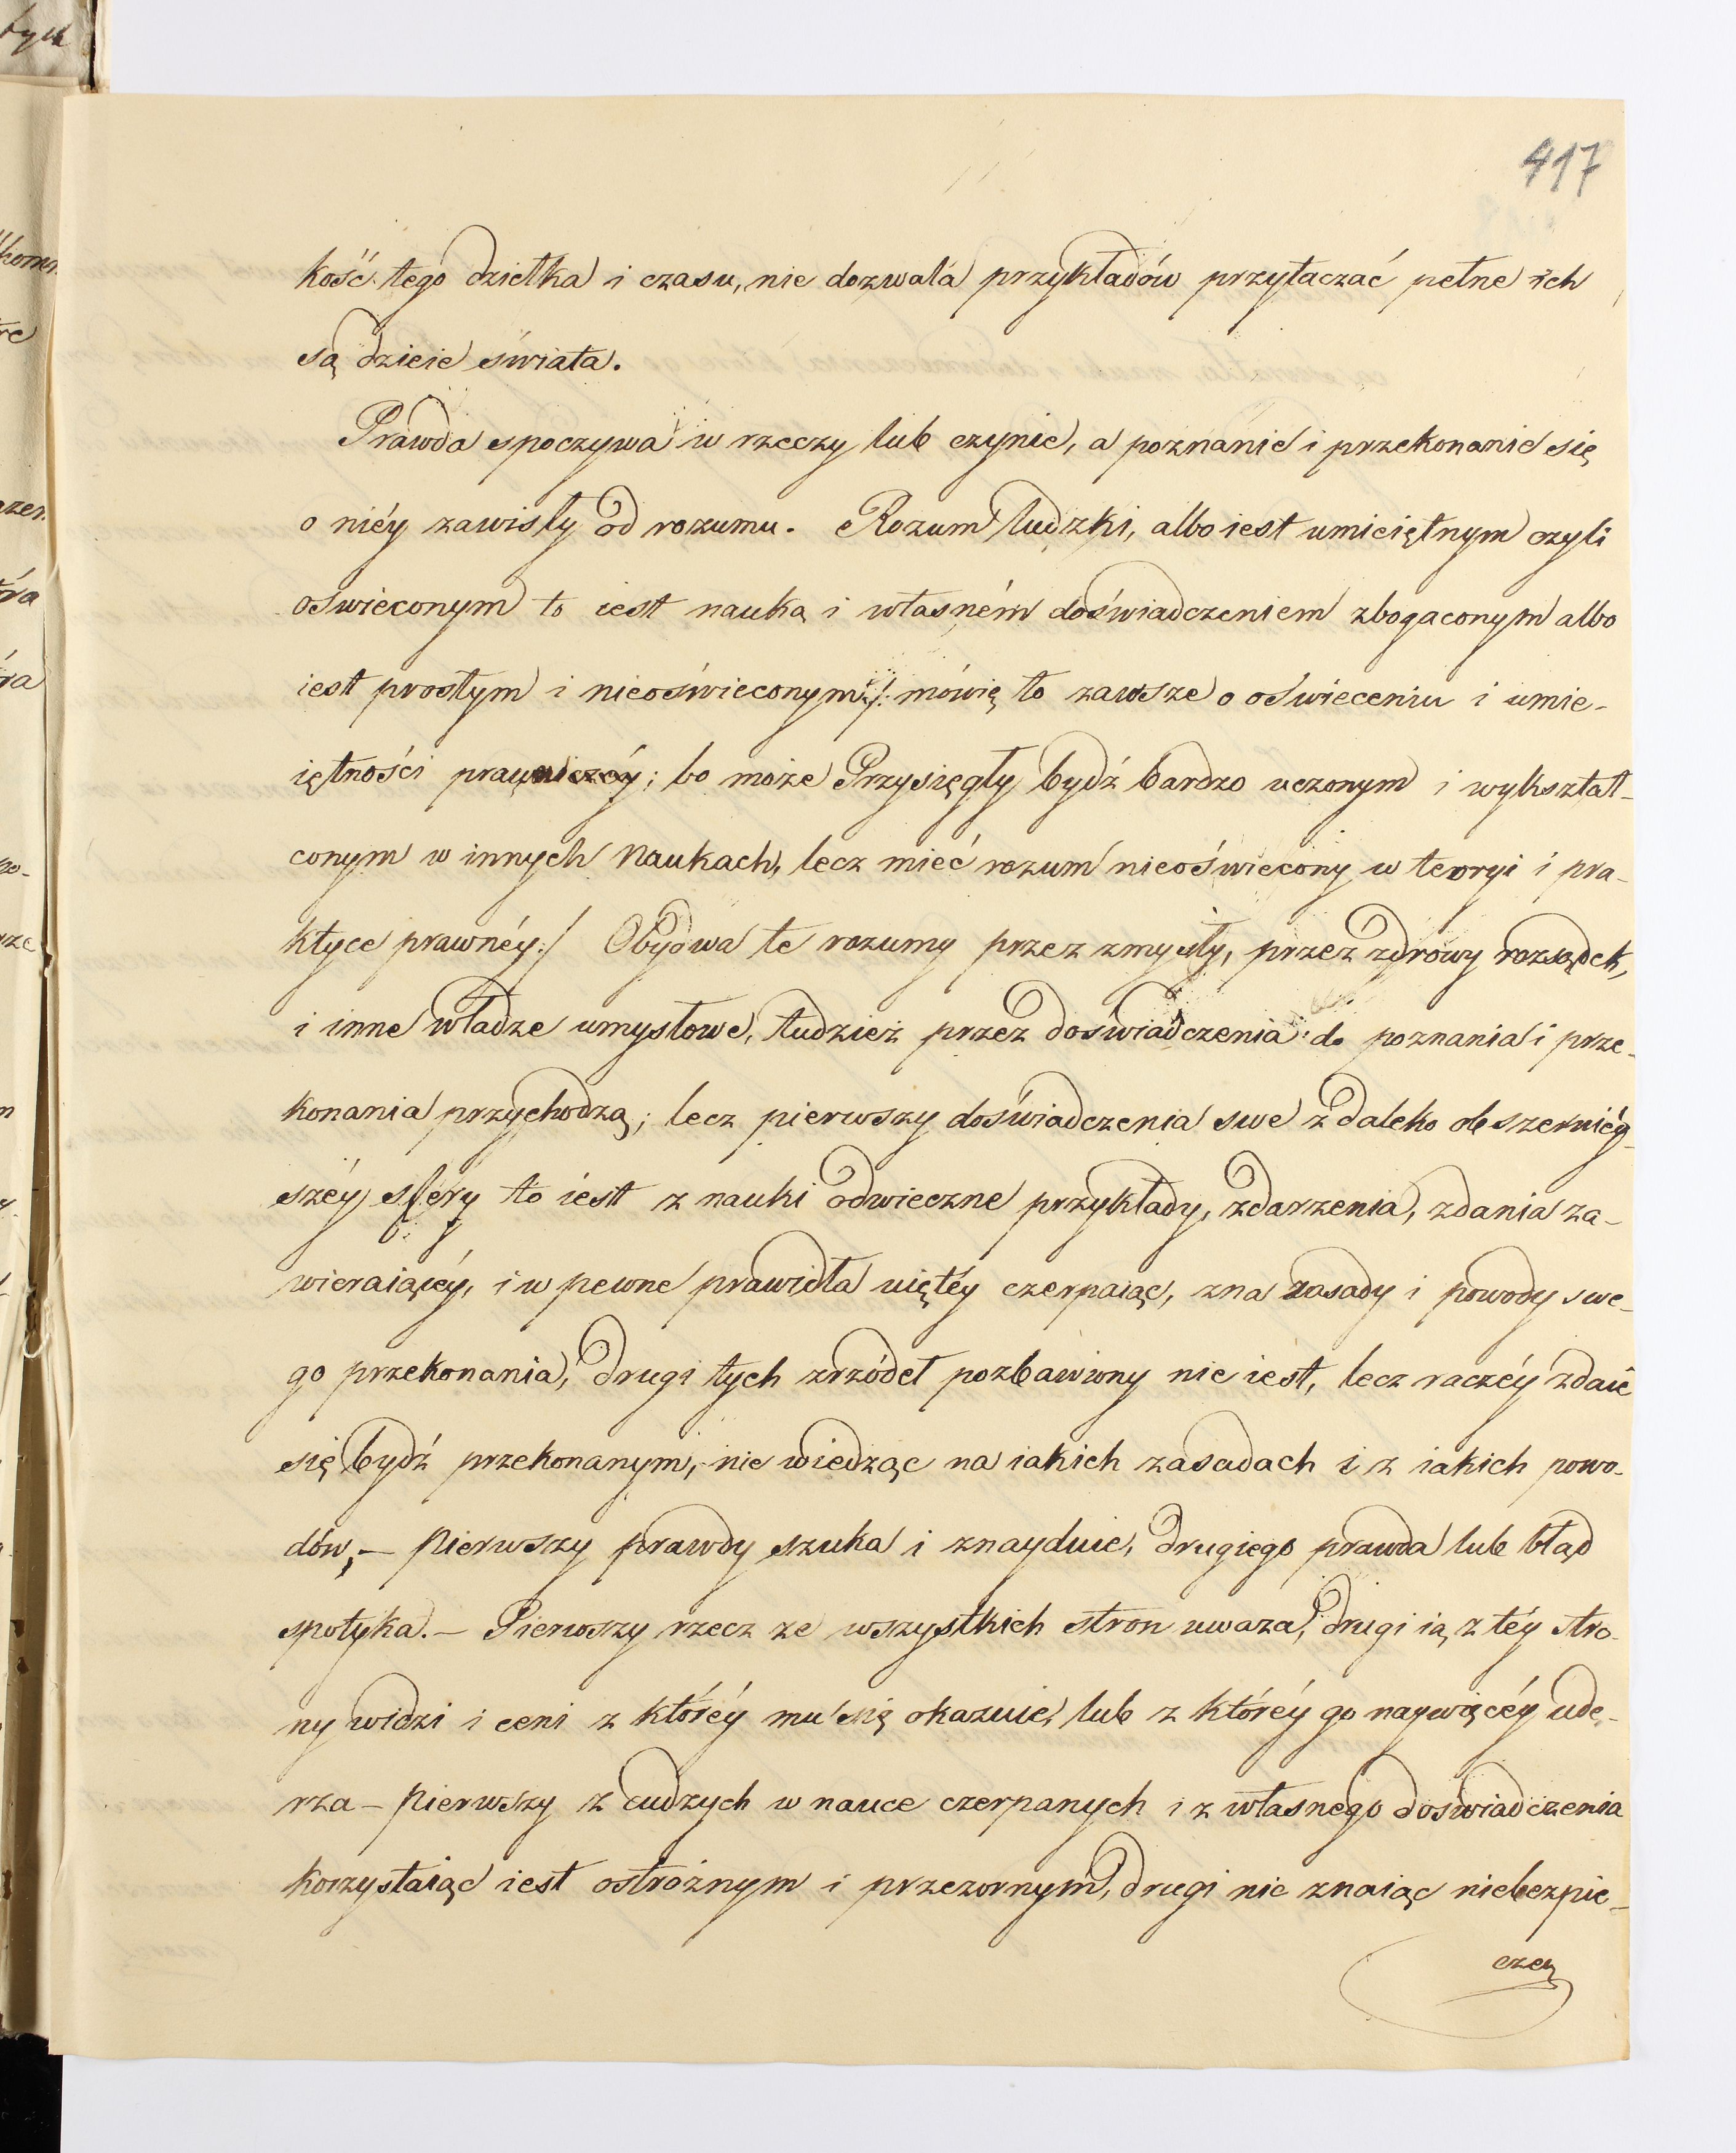 417
kość tego dziełka i czasu, nie dozwala przykładów przytaczać pełne ich
są dzieie świata.
Prawda spoczywa w rzeczy lub czynie, a poznanie i przekonanie się
o niéy zawisły od rozumu. Rozum ludzki, albo iest umieiętnym czyli
oświeconym to iest nauką i własném doświadczeniem zbogaconym albo
iest prostym i nieoświeconym /: mówię to zawsze o oświeceniu i umie-
iętności prawniczéy; bo może Przysięgły bydź bardzo uczonym i wykształ-
conym w innych Naukach, lecz mieć rozum nieoświecony w teoryi i pra-
ktyce prawnéy :/ Obydwa te rozumy przez zmysły, przez zdrowy rozsądek,
i inne władze umysłowe, tudzież przez doświadczenia do poznania i prze-
konania przychodzą; lecz pierwszy doświadczenia swe z daleko obszerniéy-
széy sféry to iest z nauki odwieczne przykłady, zdarzenia, zdania za-
wieraiącéy, i w pewne prawidła uiętéy czerpaiąc, zna zasady i powody swe-
go przekonania, drugi tych zrzódeł pozbawiony nie iest, lecz raczéy zdaie
się bydź przekonanym, nie wiedząc na iakich zasadach i z iakich powo-
dów, – Pierwszy prawdy szuka i znayduie, drugiego prawda lub błąd
spotyka. – Pierwszy rzecz ze wszystkich stron uwaza, drugi ią z téy stro-
ny widzi i ceni z któréy mu się okazuie, lub z któréy go naywięcéy ude-
rza – Pierwszy z cudzych w nauce czerpanych i z własnego doświadczenia
korzystaiąc iest ostrożnym i przezornym, drugi nie znaiąc niebezpie-
czeń